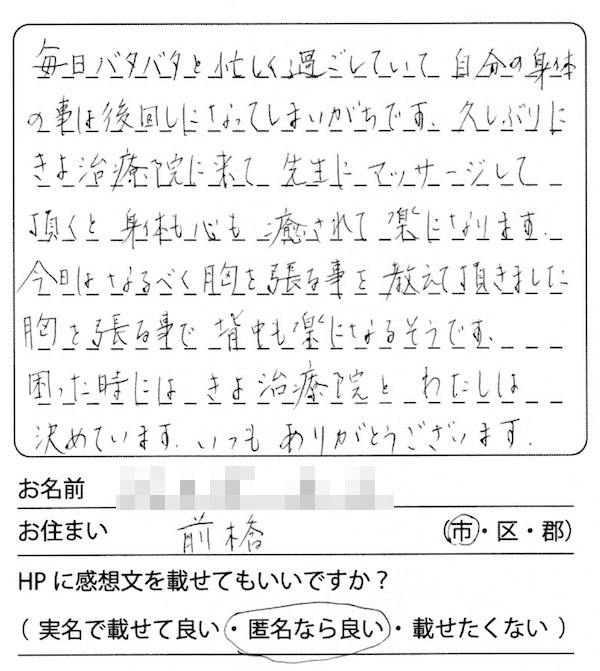 毎日バタバタと忙しく過ごしていて 自分の身体
の事は後回しになってしまいがちです、久しぶりに
きよ治療院に来て 先生に マッサージして
頂くと 身体も心も 癒されて 楽になります.
今日はなるべく胸を張る事を 教えて頂きました
胸を張る事で 背中も楽になるそうです、
困った時には きよ治療院と わたしは
決めています. いつも ありがとうございます.
お名前
お住まい 前橋 (市・区・郡)
HPに感想文を載せてもいいですか？
( 実名で載せて良い・匿名なら良い・載せたくない )